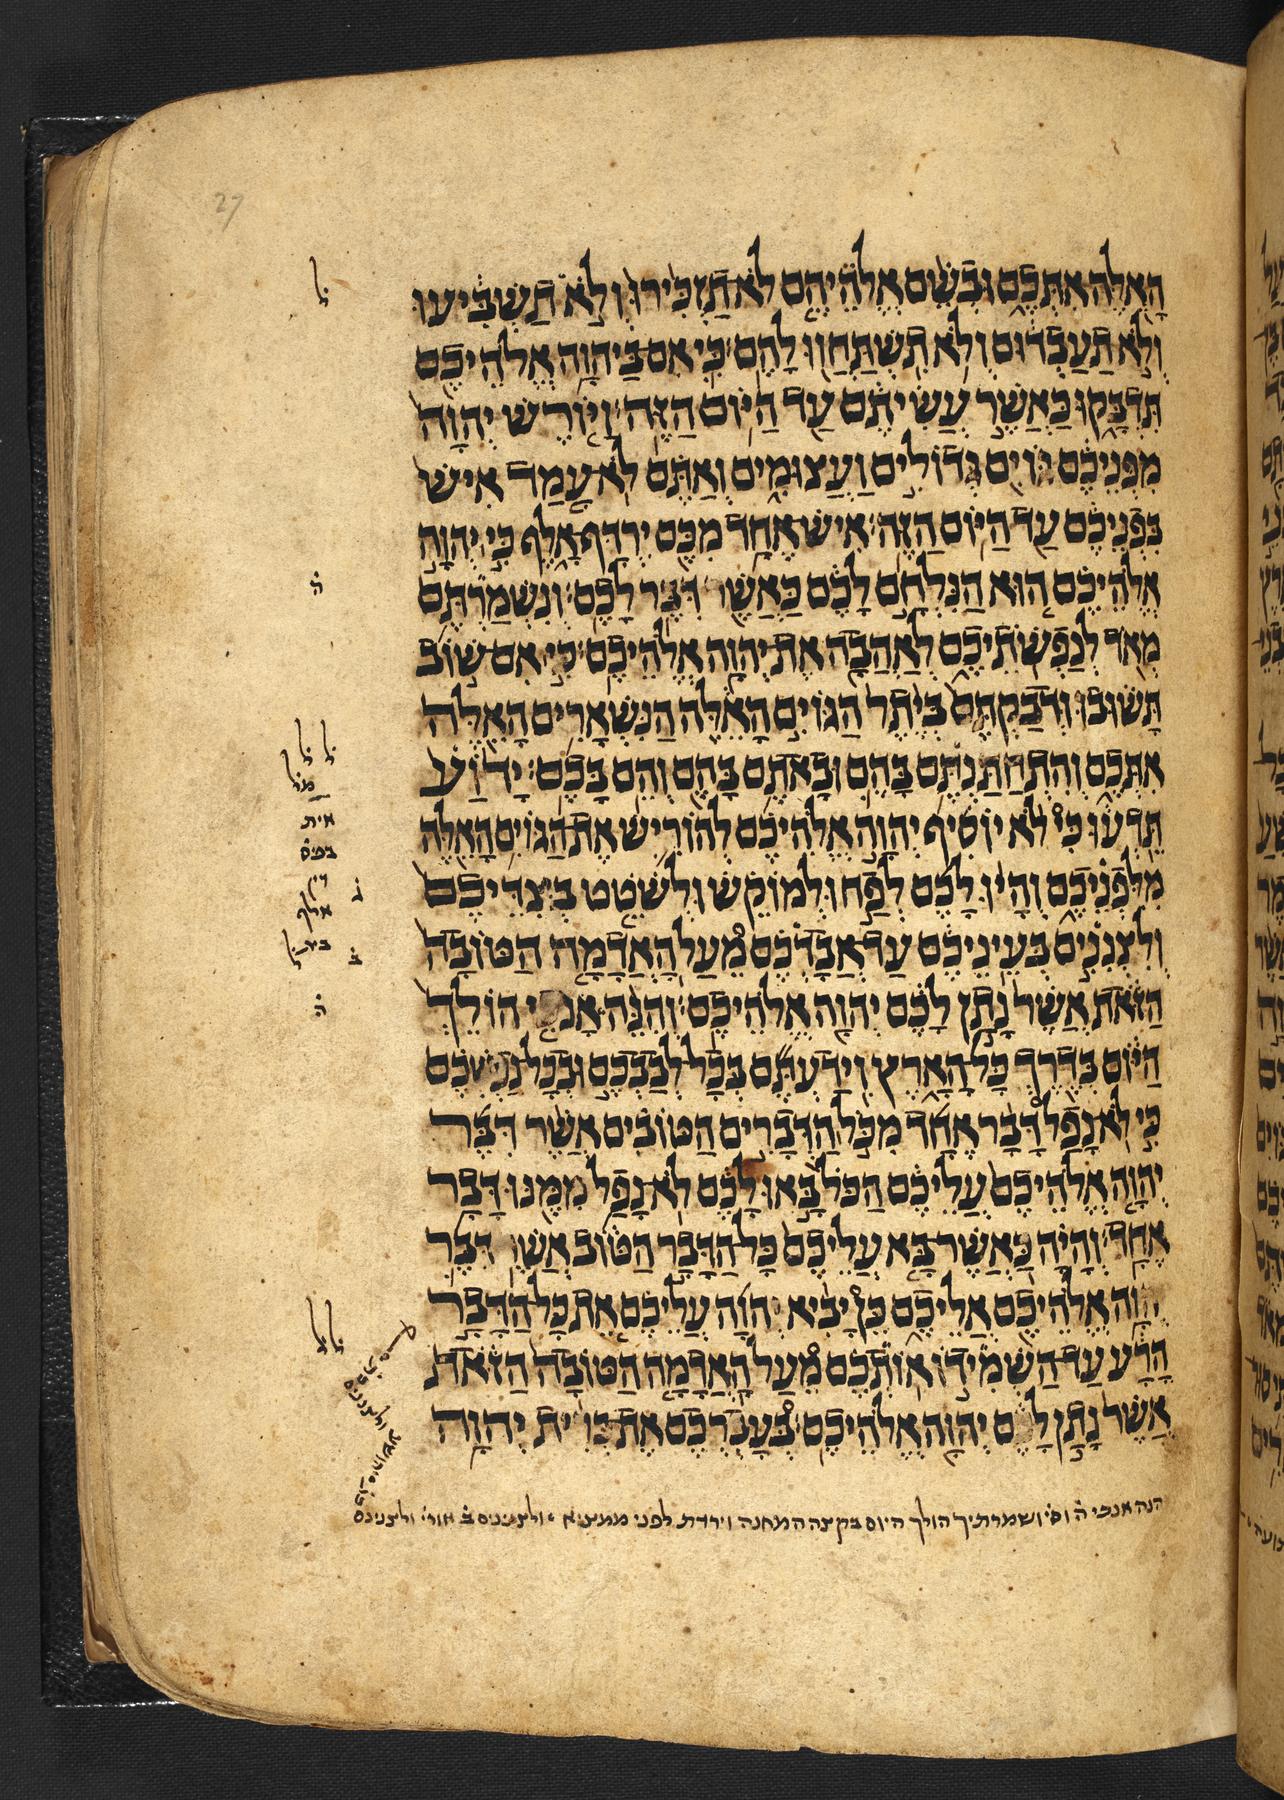 27
הָאֵלֶּה אִתְּכֶם וּבְשֵׁם אֱלֹהֵיהֶם לֹא תַזְכִּירוּ וְלֹא תַשְׁבִּיעוּ
וְלֹא תַעַבְדוּם וְלֹא תִשְׁתַּחֲווּ לָהֶם׃ כִּי אִם בַּיהוָה אֱלֹהֵיכֶם
תִּדְבָּקוּ כַּאֲשֶׁר עֲשִׂיתֶם עַד הַיּוֹם הַזֶּה׃ וַיּוֹרֶשׁ יְהוָה
מִפְּנֵיכֶם גּוֹיִם גְּדוֹלִים וַעֲצוּמִים וְאַתֶּם לֹא עָמַד אִישׁ
בִּפְנֵיכֶם עַד הַיּוֹם הַזֶּה׃ אִישׁ אֶחָד מִכֶּם יִרְדָּף אָלֶף כִּי יְהוָה
אֱלֹהֵיכֶם הוּא הַנִּלְחָם לָכֶם כַּאֲשֶׁר דִּבֶּר לָכֶם׃ וְנִשְׁמַרְתֶּם
מְאֹד לְנַפְשֹׁתֵיכֶם לְאַהֲבָה אֶת יְהוָה אֱלֹהֵיכֶם׃ כִּי אִם שׁוֹב
תָּשׁוּבוּ וּדְבַקְתֶּם בְּיֶתֶר הַגּוֹיִם הָאֵלֶּה הַנִּשְׁאָרִים הָאֵלֶּה
אִתְּכֶם וְהִתְחַתַּנְתֶּם בָּהֶם וּבָאתֶם בָּהֶם וְהֵם בָּכֶם׃ יָדוֹעַ
תֵּדְעוּ כִּי לֹא יוֹסִיף יְהוָה אֱלֹהֵיכֶם לְהוֹרִישׁ אֶת הַגּוֹיִם הָאֵלֶּה
מִלִּפְנֵיכֶם וְהָיוּ לָכֶם לְפַח וּלְמוֹקֵשׁ וּלְשֹׁטֵט בְּצִדֵּיכֶם
וְלִצְנִנִים בְּעֵינֵיכֶם עַד אֲבָדְכֶם מֵעַל הָאֲדָמָה הַטּוֹבָה
הַזֹּאת אֲשֶׁר נָתַן לָכֶם יְהוָה אֱלֹהֵיכֶם׃ וְהִנֵּה אָנֹכִי הוֹלֵךְ
הַיּוֹם בְּדֶרֶךְ כָּל הָאָרֶץ וִידַעְתֶּם בְּכָל לְבַבְכֶם וּבְכָל נַפְשְׁכֶם
כִּי לֹא נָפַל דָּבָר אֶחָד מִכֹּל הַדְּבָרִים הַטּוֹבִים אֲשֶׁר דִּבֶּר
יְהוָה אֱלֹהֵיכֶם עֲלֵיכֶם הַכֹּל בָּאוּ לָכֶם לֹא נָפַל מִמֶּנּוּ דָּבָר
אֶחָד׃ וְהָיָה כַּאֲשֶׁר בָּא עֲלֵיכֶם כָּל הַדָּבָר הַטּוֹב אֲשֶׁר דִּבֶּר
יְהוָה אֱלֹהֵיכֶם אֲלֵיכֶם כֵּן יָבִיא יְהוָה עֲלֵיכֶם אֵת כָּל הַדָּבָר
הָרָע עַד הַשְׁמִידוֹ אוֹתְכֶם מֵעַל הָאֲדָמָה הַטּוֹבָה הַזֹּאת
אֲשֶׁר נָתַן לָכֶם יְהוָה אֱלֹהֵיכֶם׃ בְּעָבְרְכֶם אֶת בְּרִית יְהוָה
ל
ה
ל ל
ל
אית
בפס
אלף
בית
ג
ב
ה
ל ל
הנה אנכי ה וס ושמרתיך הולך היום בקצה המחנה וירדת לפני ממציא ולצנינים ב אורי ולצנינם